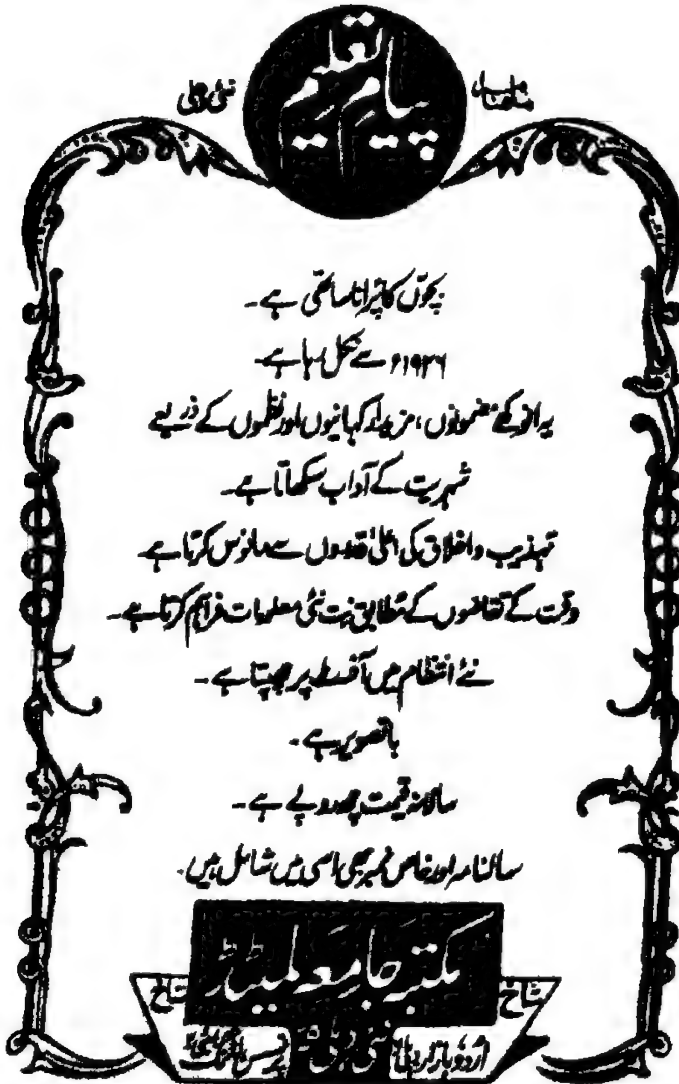 ماہنامہ پیام تعلیم نئی دہلی
بچوں کا پرانا ساتھی ہے۔
۱۹۲۶ء سے نکل رہا ہے۔
یہ انوکھے مضمونوں، مزیدار کہانیوں اور نظموں کے ذریعے
شہریت کے آداب سکھاتا ہے۔
تہذیب و اخلاق کی اعلیٰ قدروں سے مانوس کرتا ہے۔
وقت کے تقاضوں کے مطابق نت نئی معلومات فراہم کرتا ہے۔
نئے انتظام میں آفسٹ پر چھپتا ہے۔
باتصویر ہے۔
سالانہ قیمت چھ روپے ہے۔
سالنامہ اور خاص نمبر بھی اسی میں شامل ہیں۔
مکتبہ جامعہ لمیٹڈ
شاخ شاخ
اردو بازار دہلی نئی دہلی پرنسس بلڈنگ